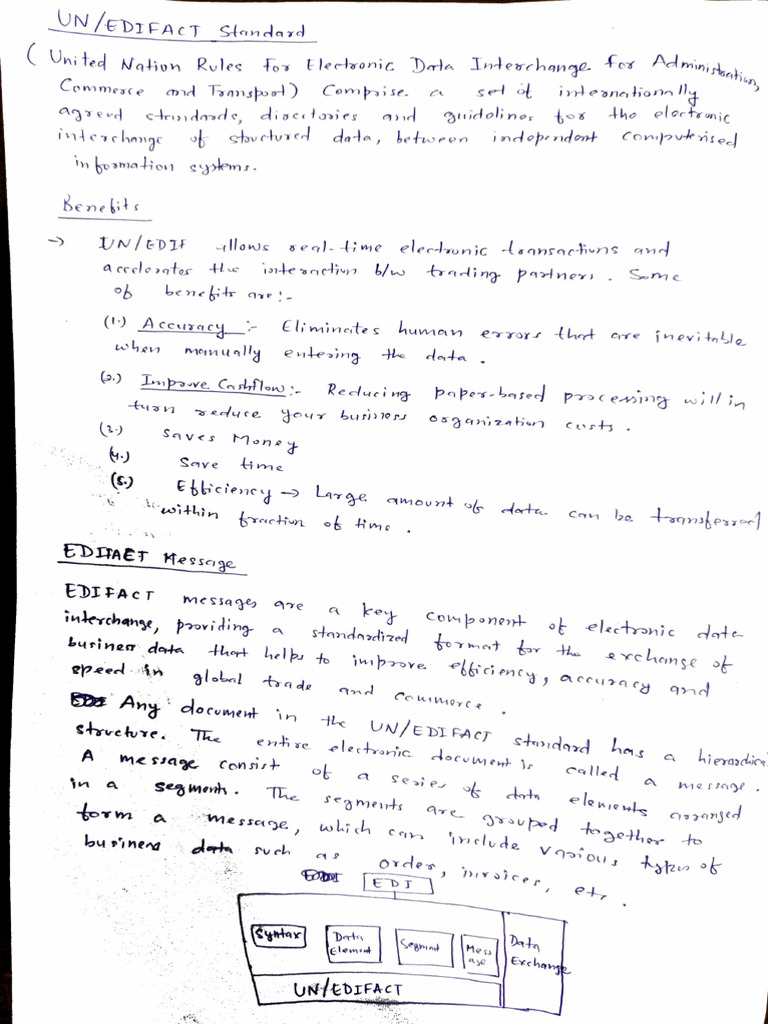 UN/EDIFACT Standard
(United Nation Rules for Electronic Data Interchange for Administration,
Commerce and Transport) Comprise a set of internationally
agreed standards, directories and guidelines for the electronic
interchange of structured data, between independent computerised
information systems.
Benefits
→ UN/EDIF allows real-time electronic transactions and
accelerates the interaction b/w trading partners. Some
of benefits are:-
(1.) Accuracy :- Eliminates human errors that are inevitable
when manually entering the data.
(2.) Improve Cashflow:- Reducing paper-based processing will in
turn reduce your business organization costs.
(3.) Saves Money
(4.) Save time
(5.) Efficiency → Large amount of data can be transferred
within fraction of time.
EDIFAET Message
EDIFACT messages are a key component of electronic data
interchange, providing a standardized format for the exchange of
business data that helps to improve efficiency, accuracy and
speed in global trade and commerce.
Any document in the UN/EDIFACT standard has a hierarchical
structure. The entire electronic document is called a message.
A message consist of a series of data elements arranged
in a segments. The segments are grouped together to
form a message, which can include various types of
business data such as order, invoices, etc.
EDI
Syntax Data Element Segment Message Data Exchange
UN/EDIFACT